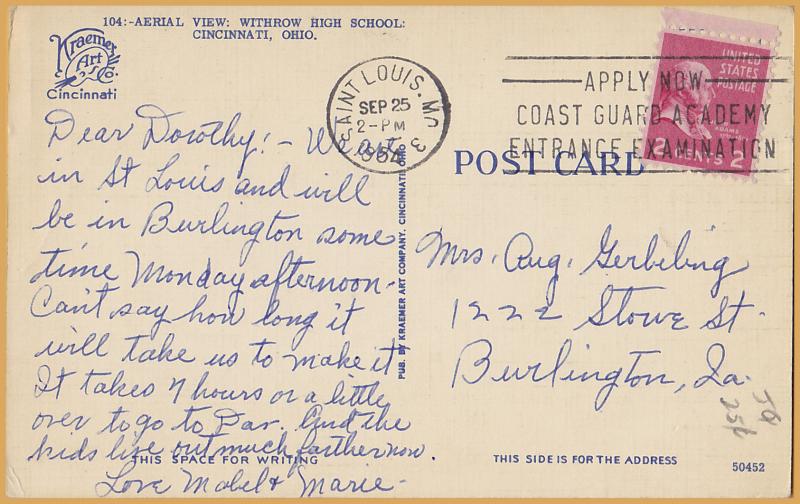 104:-AERIAL VIEW: WITHROW HIGH SCHOOL:
CINCINNATI, OHIO.
Kraemer
Art
Co.
Cincinnati
Dear Dorothy:- We are
in St Louis and will
be in Burlington some
time Monday afternoon-
Can't say how long it
will take us to make it
It takes 7 hours or a little
over to go to Dav. And the
kids live out much farther now.
Love Mabel & Marie-
THIS SPACE FOR WRITING
PUB. BY KRAEMER ART COMPANY, CINCINNATI, OHIO
SAINT LOUIS, MO
SEP 25
2-PM
1954
3
APPLY NOW
COAST GUARD ACADEMY
ENTRANCE EXAMINATION
UNITED
STATES
POSTAGE
ADAMS
2 CENTS 2
POST CARD
Mrs. Aug. Gerbeling
1222 Stowe St.
Burlington, Ia.
THIS SIDE IS FOR THE ADDRESS
50452